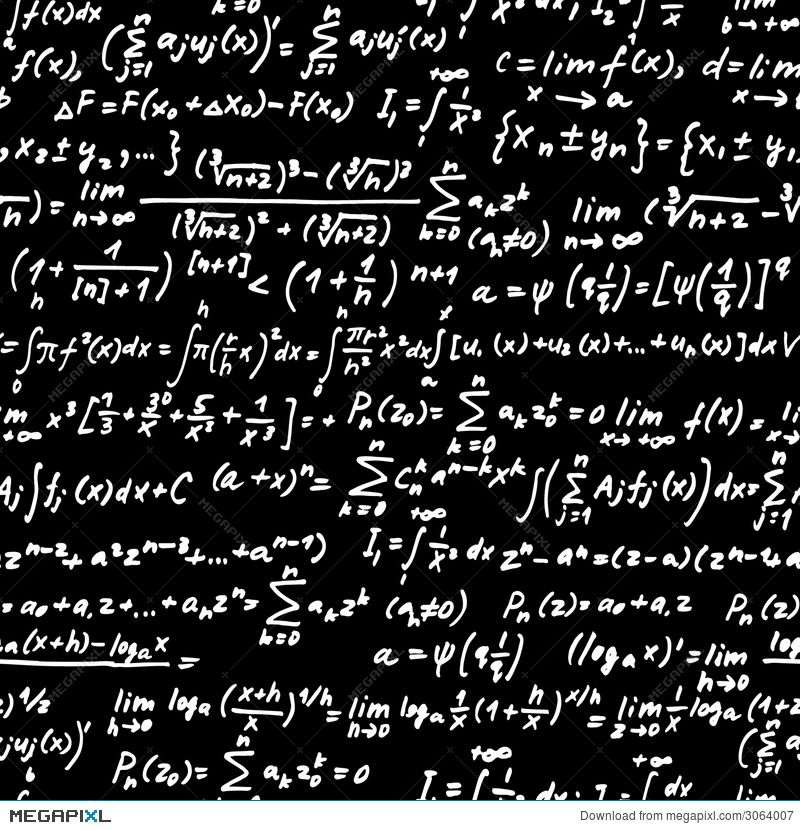 ∫f(x)dx k=0 ∫ x² dx, I₂ ∫ 1/x lim b→+∞
f(x), (∑_{j=1}^{n} aⱼuⱼ(x))' = ∑_{j=1}^{n} aⱼuⱼ'(x) c = lim_{x→a} f(x), d = lim_{x→
b ΔF = F(x₀+Δx₀) − F(x₀) I₁ = ∫₁^{+∞} 1/x²
, x₂ ± y₂, ... } {xₙ ± yₙ} = {x₁ ± y₁,
n) = lim_{n→∞} ((∛(n+2))³ − (∛n)³)/((∛(n+2))² + (∛(n+2)) ∑_{k=0}^{n} aₖzᵏ (aₙ≠0) lim_{n→∞} (∛(n+2) − ∛
(1 + 1/([n]+1))^{[n+1]} < (1 + 1/n)^{n+1} a = ψ(q 1/q) = [ψ(1/q)]^q
= ∫₀ πf²(x)dx = ∫^h π(r/h x)² dx = ∫₀^h πr²/h² x² dx ∫ₐ^x [u₁(x)+u₂(x)+...+uₙ(x)]dx V
m_{+∞} x³[1/3 + 30/x + 5/x² + 1/x³] = + Pₙ(z₀) = ∑_{k=0}^{n} aₖz₀ᵏ = 0 lim_{x→+∞} f(x) = li_{x→
Aⱼ∫fⱼ(x)dx + C (a+x)ⁿ = ∑_{k=0}^{n} Cₙᵏ a^{n−k} xᵏ ∫(∑_{j=1}^{n} Aⱼfⱼ(x))dx = ∑_{j=1}^{n}
z^{n−2} + a²z^{n−3} + ... + a^{n−1}) I₁ = ∫₁^{+∞} 1/x² dx zⁿ − aⁿ = (z−a)(z^{n−1} + a
= a₀ + a₁z + ... + aₙzⁿ = ∑_{k=0}^{n} aₖzᵏ (aₙ≠0) Pₙ(z) = a₀ + a₁z Pₙ(z)
a(x+h) − logₐx = a = ψ(q 1/q) (logₐx)' = lim_{h→0} log
)^{1/2} lim_{h→0} logₐ((x+h)/x)^{1/h} = lim_{h→0} logₐ 1/x (1 + h/x)^{x/h} = lim_{z→0} 1/x logₐ(1+z
ⱼuⱼ(x))' Pₙ(z₀) = ∑_{k=0}^{n} aₖz₀ᵏ = 0 (∑_{j=1}^{n} a
b I₁ = ∫^{+∞} 1/ dx; I = ∫^{+∞} dx lim
MEGAPIXL Download from megapixl.com/3064007